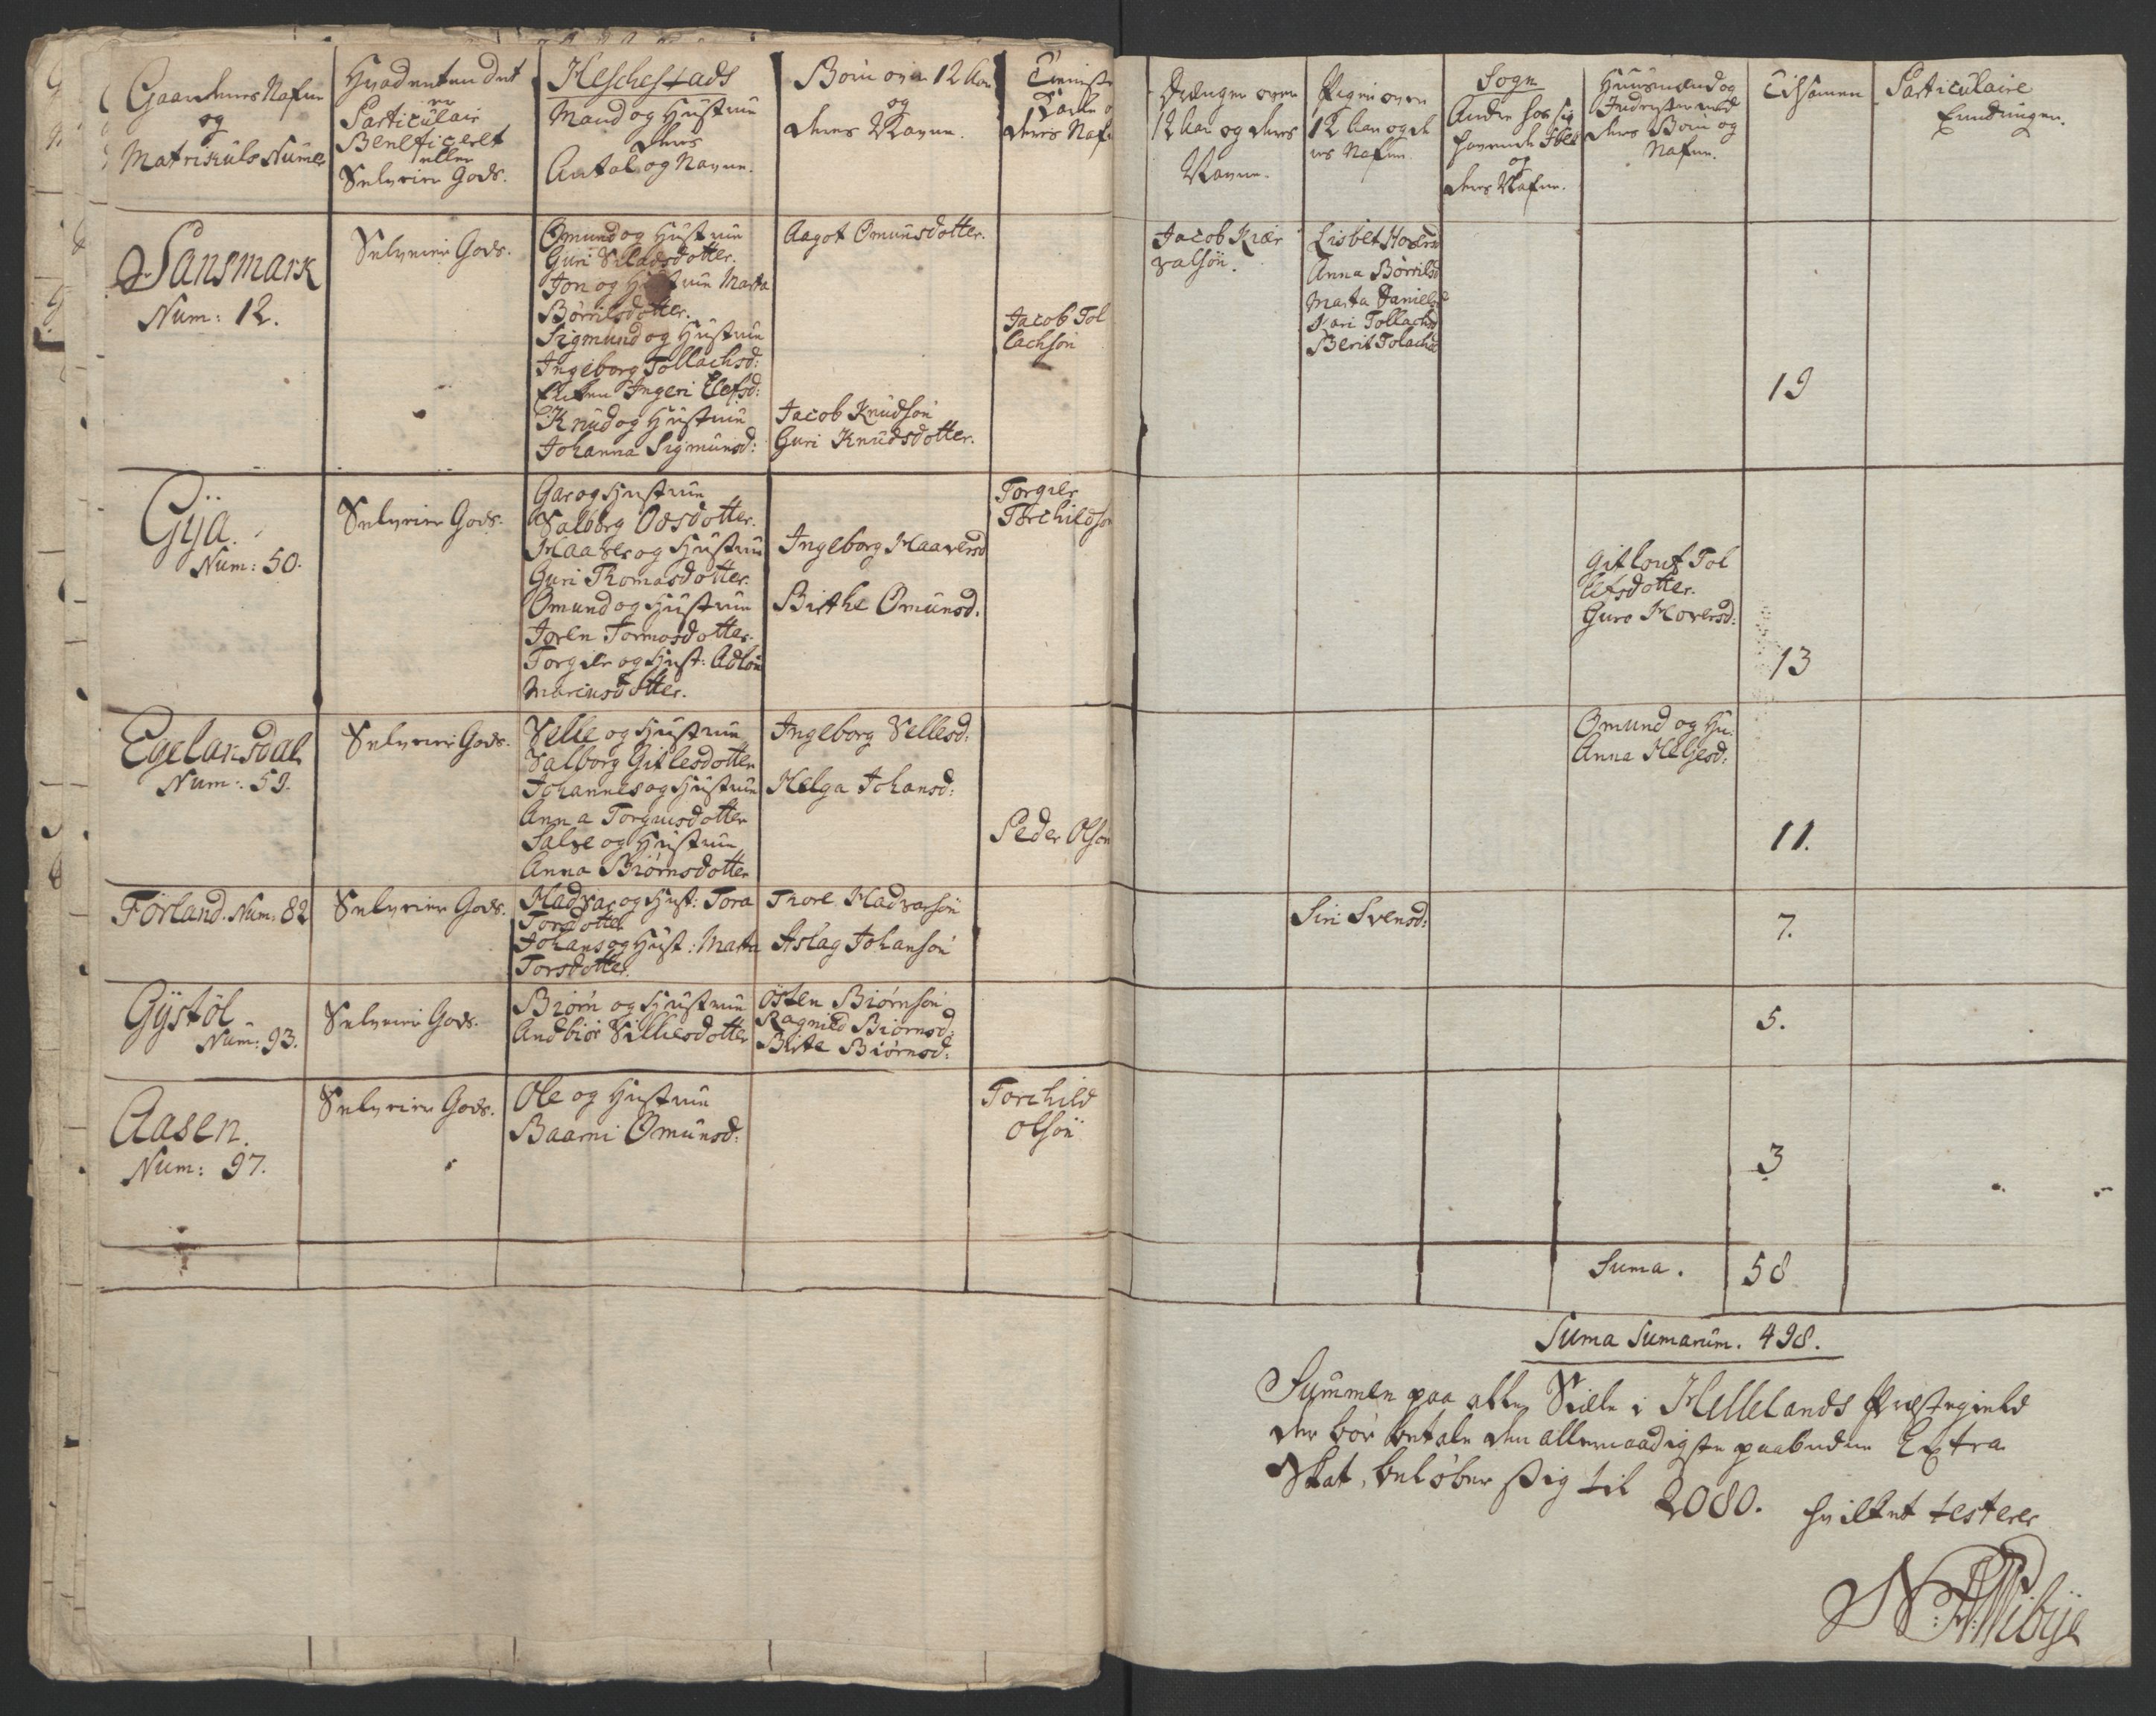 Gaardenes Nafne
og
Matriculs Numer
Hvad enten det
er
Particulair
Beneficeret
eller
Selveier Gods.
Heschestads
Mand og Hustrue
deres
Antal og Navne.
Børn over 12 Aar
og
deres Navne.
Tieniste
Karle o
deres Nafn
Drenger over
12 Aar og deres
Navne.
Piger over
12 Aar og de
res Nafne.
Sogn
Andre hos sig
havende Folk
og
deres Nafne.
Huusmænd og
Inderster med
deres Børn og
Nafne.
Tilsamen
Particulaire
Erindringer.
Sansmark
Num: 12.
Selveier Gods.
Omund og Hustrue
Guri Seladsdotter.
Jon og Hustrue Marta
Børrilsdotter.
Sigmund og Hustrue
Ingeborg Tollachsd:
Enken Ingeri Elefsd:
Knud og Hustrue
Johanna Sigmunsd:
Aagot Omunsdotter.
Jacob Knudsøn
Guri Knudsdotter.
Jacob Tol
lachsøn
Jacob Kiær
valsøn.
Lisbet Hoversd
Anna Børrilsd
Marta Danielsd
Kari Tollachsd
Berit Tolachsd
19
Gÿa.
Num: 50.
Selveier Gods.
Gar og Hustrue
Valborg Odsdotter.
Haaver og Hustrue
Guri Thomasdotter.
Omund og Hustrue
Joren Tormosdotter.
Torgier og Hust: Adlou
Marcusdotter.
Ingeborg Haaversd
Birthe Omunsd.
Torgier
Torchildsøn
Gitlout Tol
lefsdotter.
Guro Hoversd:
13
Egelansdal
Num: 59.
Selveier Gods.
Velle og Hustrue
Valborg Gitlesdotter
Johannes og Hustrue
Anna Torgiusdotter
Salve og Hustrue
Anna Biørnsdotter
Ingeborg Vellesd:
Helga Johansd:
Peder Olsøn
Omund og Hu:
Anna Heljesd:
11.
Førland. Num: 82
Selveier Gods.
Hadvar og Hust: Tora
Torsdotter
Johans og Hust: Marta
Torsdotter.
Thore Hadvarsøn
Aslag Johansøn
Siri Svensd:
7.
Gÿstøl
Num: 93.
Selveier Gods.
Biørn og Hustrue
Andbiør Villiesdotter
Østen Biørnsøn
Ragnild Biørnsd:
Birte Biørnsd:
5.
Aasen.
Num: 97.
Selveier Gods.
Ole og Hustrue
Baarni Omunsd:
Torchild
Olsøn
3
Suma. 58
Suma Sumarum. 498.
Summen paa alle Siæle i Hellelands Præstegield
der bør betale den allernaadigste paabudne Extra
Skat, beløber sig til 2080. hvilket testerer